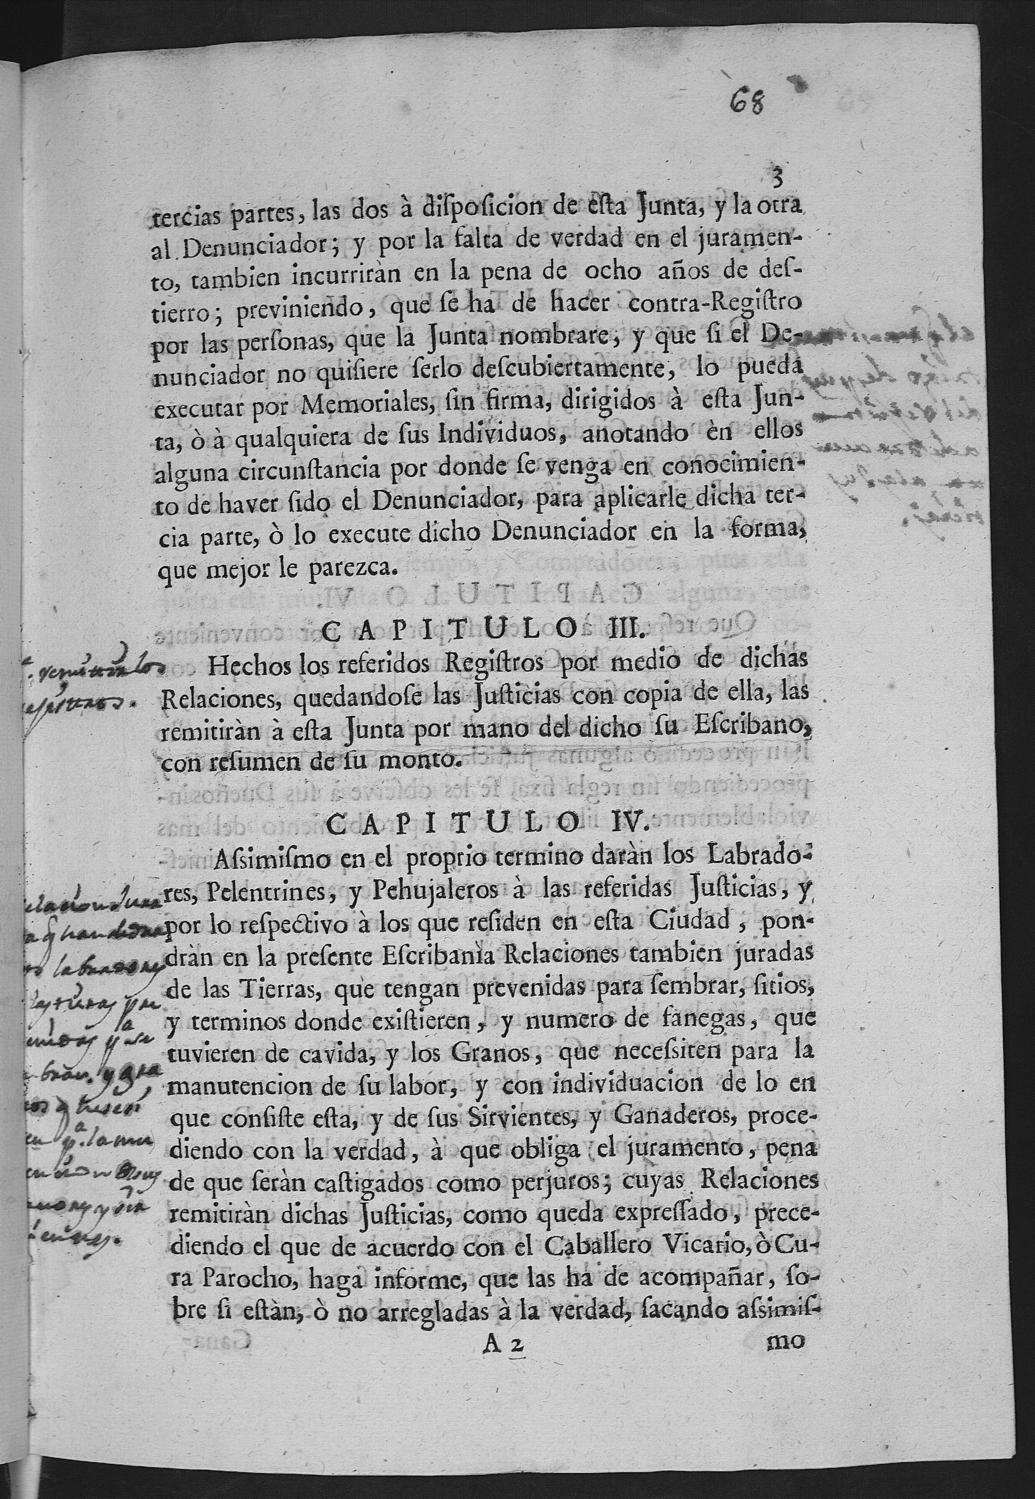 68
3
tercias partes, las dos à diſpoſicion de eſta Junta, y la otra
al Denunciador; y por la falta de verdad en el juramen-
to, tambien incurriràn en la pena de ocho años de deſ-
tierro; previniendo, que ſe ha de hacer contra-Regiſtro
por las perſonas, que la Junta nombrare, y que ſi el De-
nunciador no quiſiere ſerlo deſcubiertamente, lo pueda
executar por Memoriales, ſin firma, dirigidos à eſta Jun-
ta, ò à qualquiera de ſus Individuos, anotando èn ellos
alguna circunſtancia por donde ſe venga en conocimien-
to de haver ſido el Denunciador, para aplicarle dicha ter-
cia parte, ò lo execute dicho Denunciador en la forma,
que mejor le parezca.
CAPITULO III.
Hechos los referidos Regiſtros por medio de dichas
Relaciones, quedandoſe las Juſticias con copia de ella, las
remitiràn à eſta Junta por mano del dicho ſu Eſcribano,
con reſumen de ſu monto.
CAPITULO IV.
Aſsimiſmo en el proprio termino daràn los Labrado-
res, Pelentrines, y Pehujaleros à las referidas Juſticias, y
por lo reſpectivo à los que reſiden en eſta Ciudad, pon-
dràn en la preſente Eſcribanìa Relaciones tambien juradas
de las Tierras, que tengan prevenidas para ſembrar, ſitios,
y terminos donde exiſtieren, y numero de fanegas, que
tuvieren de cavida, y los Granos, que neceſsiten para la
manutencion de ſu labor, y con individuacion de lo en
que conſiſte eſta, y de ſus Sirvientes, y Ganaderos, proce-
diendo con la verdad, à que obliga el juramento, pena
de que ſeràn caſtigados como perjuros; cuyas Relaciones
remitiràn dichas Juſticias, como queda expreſſado, prece-
diendo el que de acuerdo con el Caballero Vicario, ò Cu-
ra Parocho, haga informe, que las ha de acompañar, ſo-
bre ſi eſtàn, ò no arregladas à la verdad, ſacando aſsimiſ-
A 2
mo